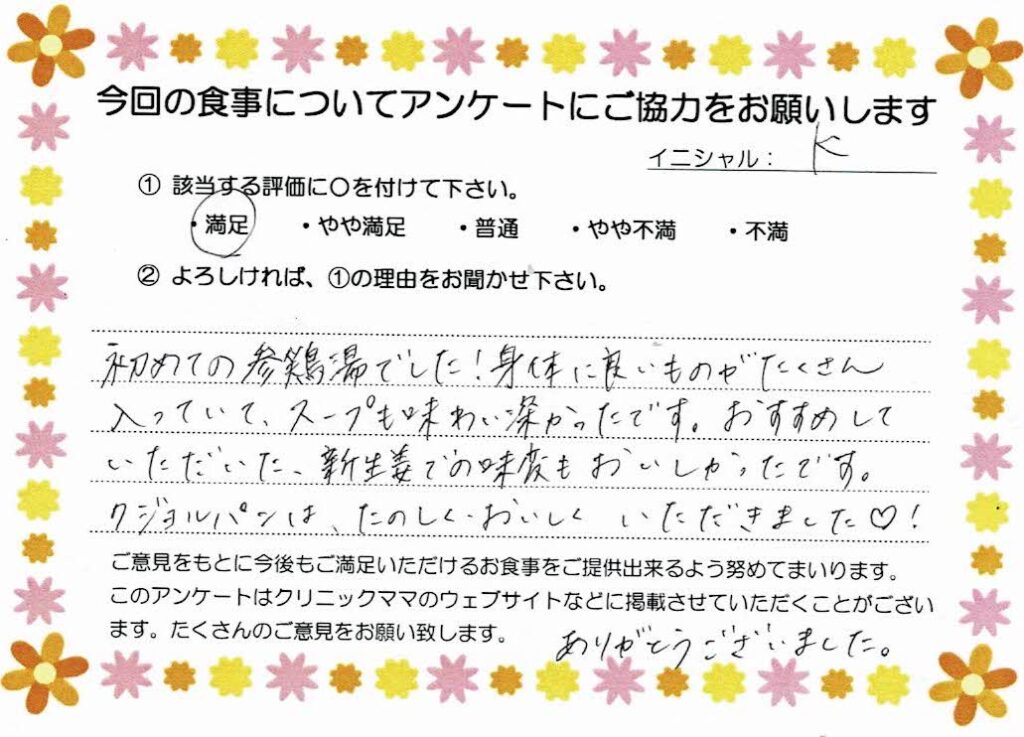 今回の食事についてアンケートにご協力をお願いします
イニシャル： K
① 該当する評価に〇を付けて下さい。
・満足 ・やや満足 ・普通 ・やや不満 ・不満
② よろしければ、①の理由をお聞かせ下さい。
初めての参鶏湯でした！身体に良いものがたくさん
入っていて、スープも味わい深かったです。おすすめして
いただいた、新生姜での味変もおいしかったです。
クジョルパンは、たのしく・おいしく いただきました♡！
ご意見をもとに今後もご満足いただけるお食事をご提供出来るよう努めてまいります。
このアンケートはクリニックママのウェブサイトなどに掲載させていただくことがござい
ます。たくさんのご意見をお願い致します。
ありがとうございました。